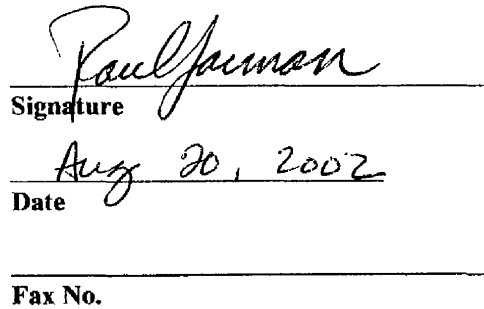 Paul Jarman
Signature
Aug 20, 2002
Date
Fax No.